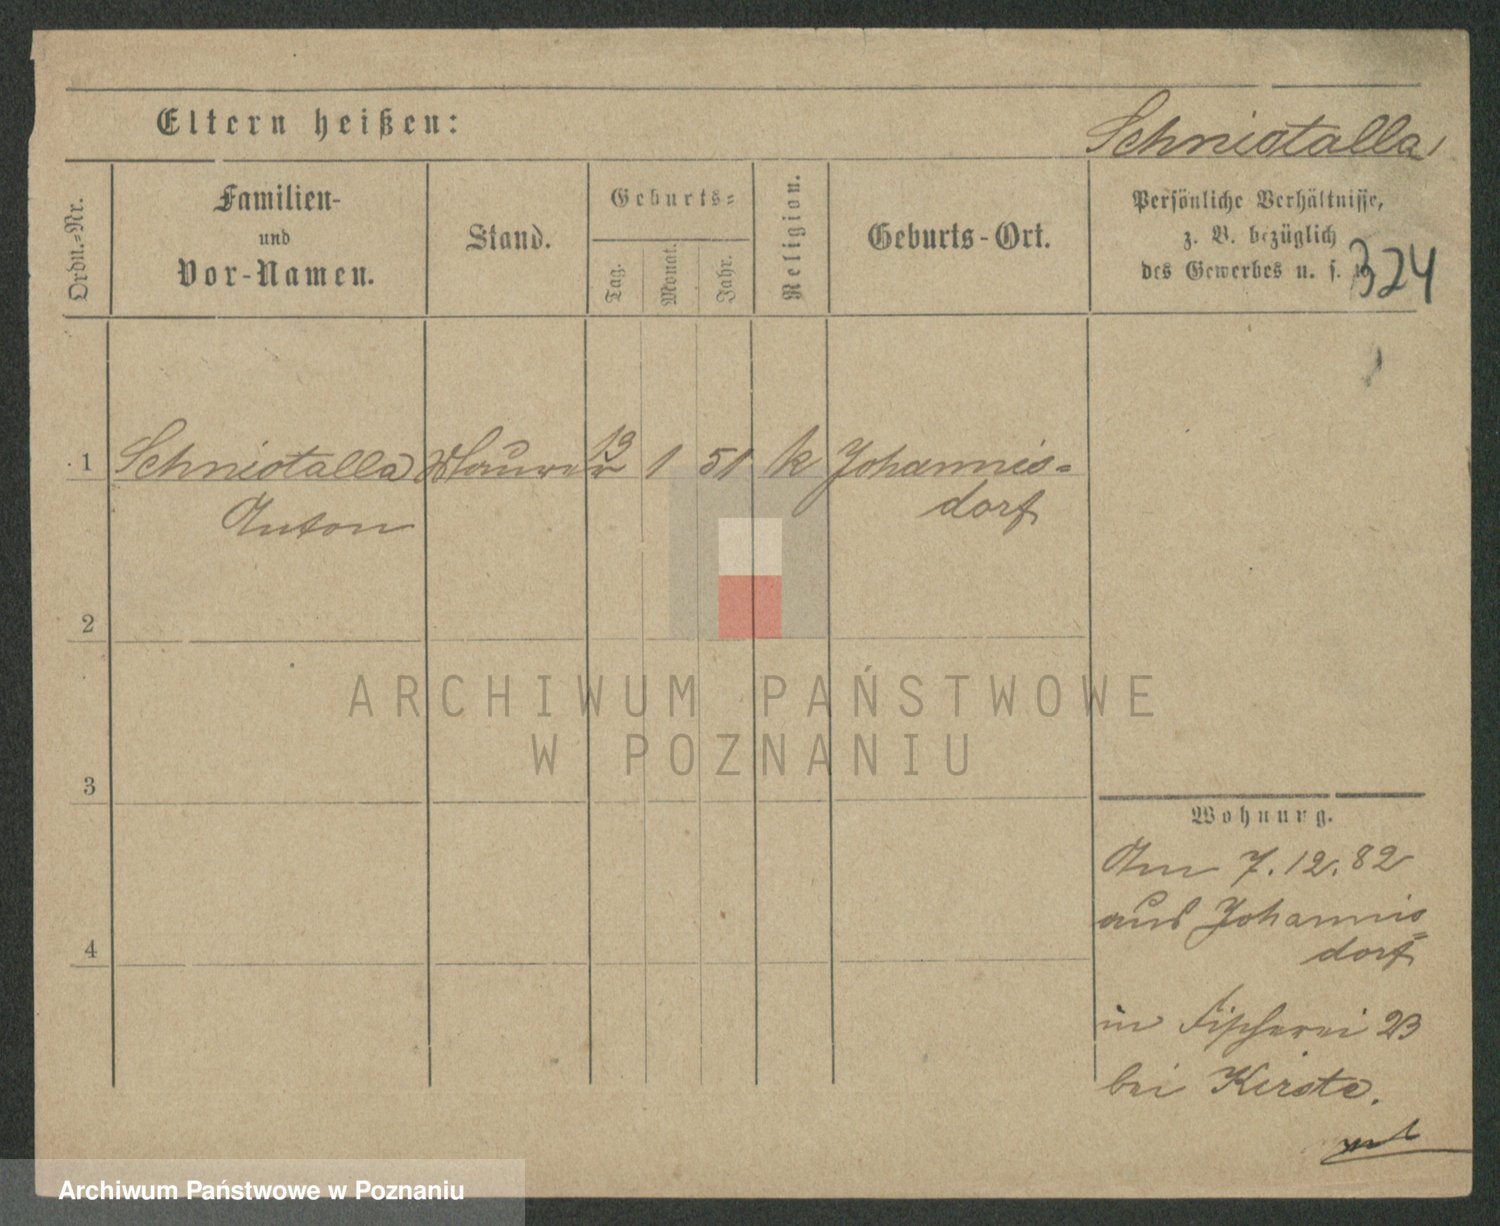 Eltern heißen:
Schniotalla
Ordn.-Nr.
Familien-
und
Vor-Namen.
Stand.
Geburts-
Tag.
Monat.
Jahr.
Religion.
Geburts-Ort.
Persönliche Verhältnisse,
z. B. bezüglich
des Gewerbes u. s. w.
324
1 Schniotalla Maurer 13 1 51 k Johannis-
Anton dorf
2
ARCHIWUM PAŃSTWOWE
W POZNANIU
3
Wohnung.
Am 7.12.82
aus Johannis-
4
dorf
in Fischerei 23
bei Kirste.
Archiwum Państwowe w Poznaniu